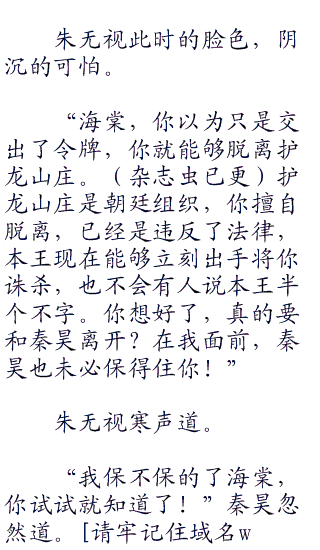 朱无视此时的脸色，阴
沉的可怕。
“海棠，你以为只是交
出了令牌，你就能够脱离护
龙山庄。（杂志虫已更）护
龙山庄是朝廷组织，你擅自
脱离，已经是违反了法律，
本王现在能够立刻出手将你
诛杀，也不会有人说本王半
个不字。你想好了，真的要
和秦昊离开？在我面前，秦
昊也未必保得住你！”
朱无视寒声道。
“我保不保的了海棠，
你试试就知道了！”秦昊忽
然道。[请牢记住域名w